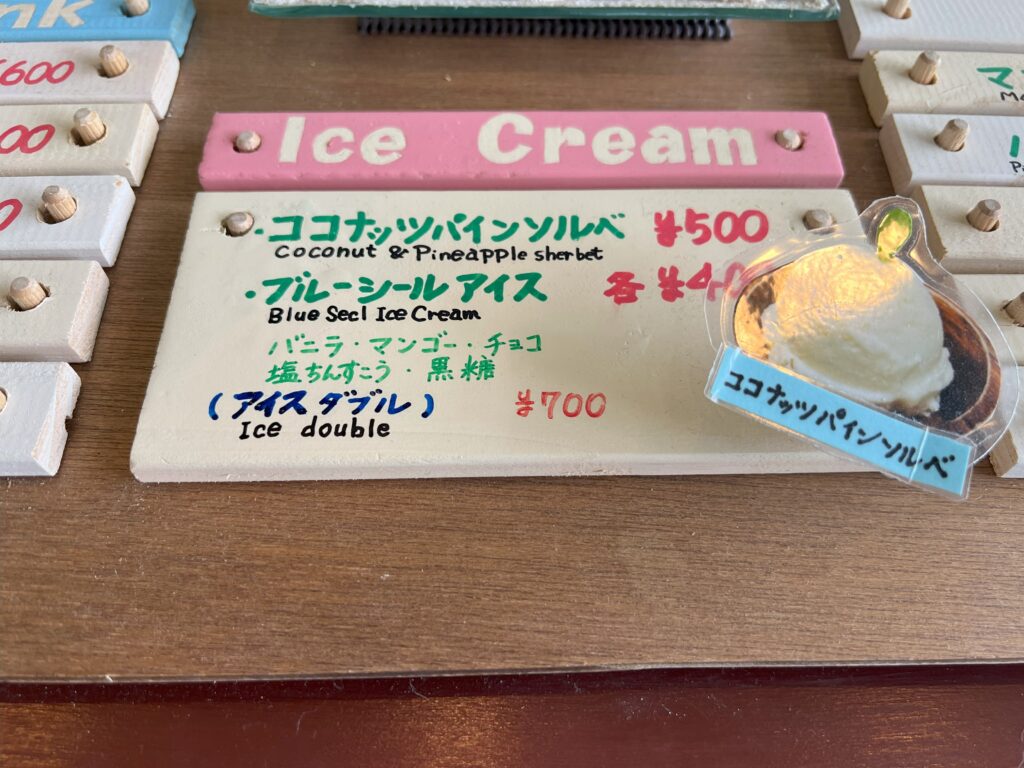 nk
¥600
00
0
Ice Cream
・ココナッツパインソルベ ¥500
Coconut & Pineapple sherbet
・ブルーシールアイス 各 ¥40
Blue Secl Ice Cream
バニラ・マンゴー・チョコ
塩ちんすこう・黒糖
(アイスダブル) ¥700
Ice double
ココナッツパインソルベ
マ